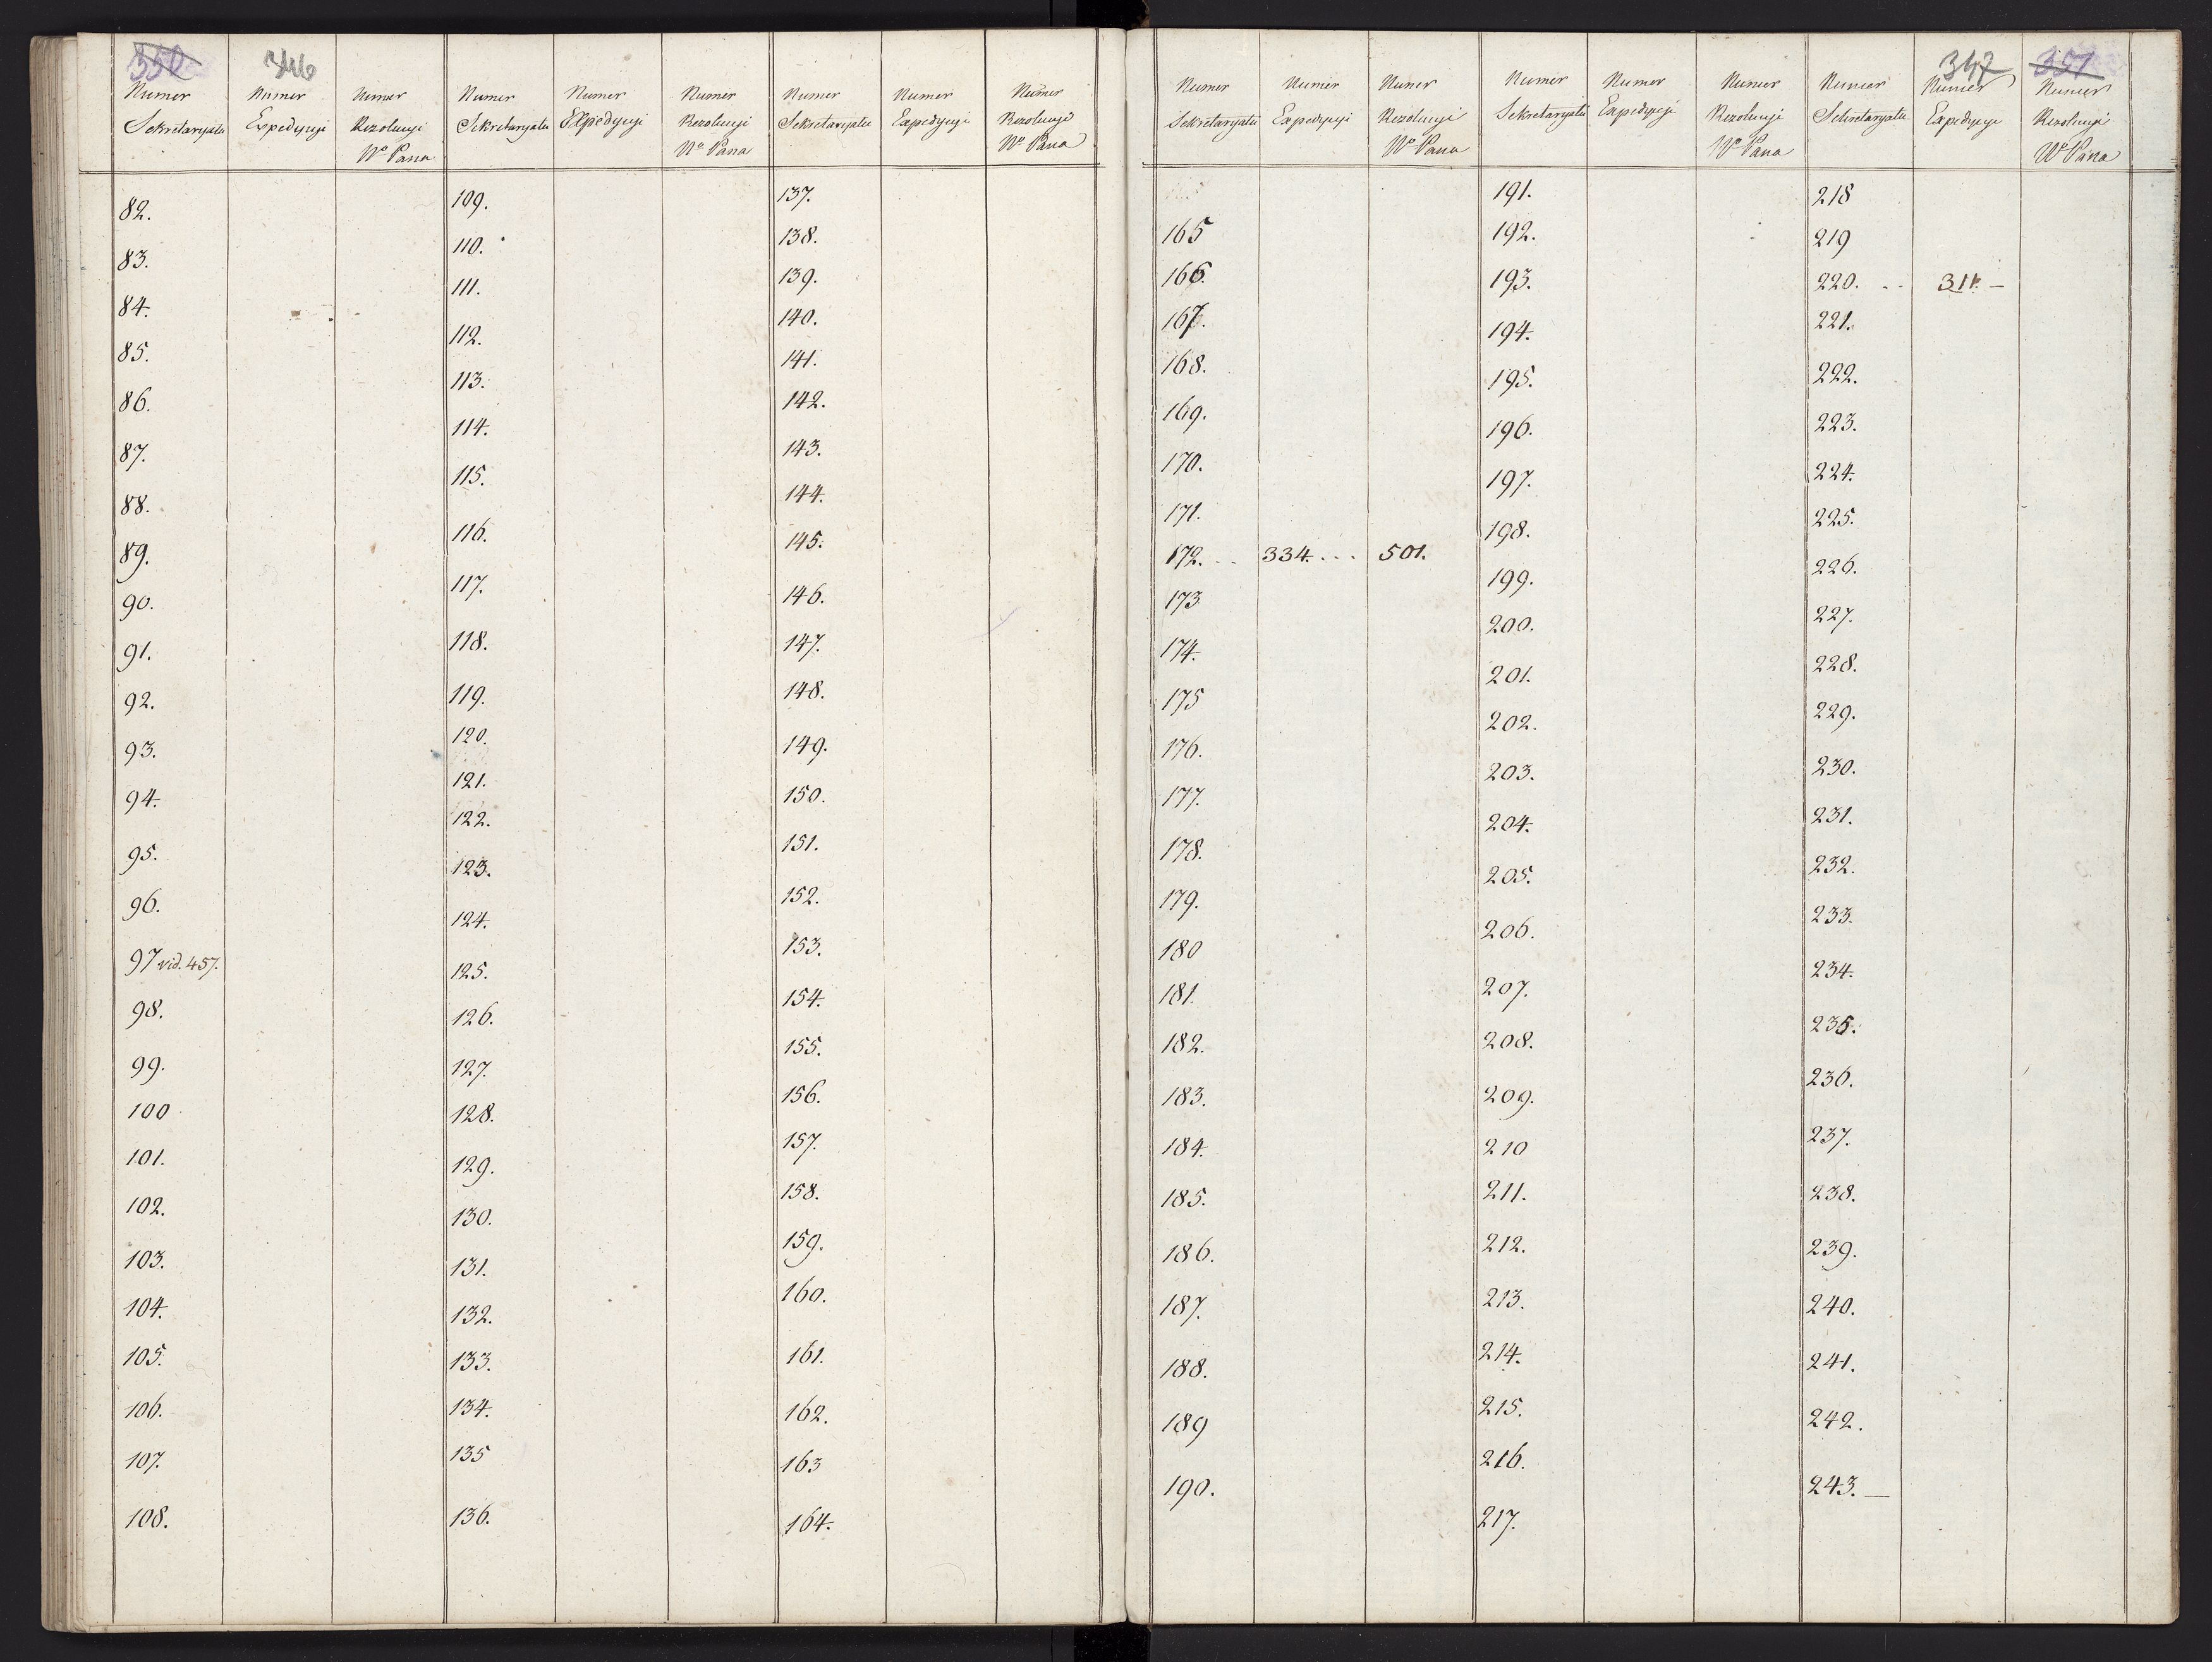 350 346
Numer Sekretaryatu
Numer Expedycyi
Numer Rezolucyi Wo Pana
Numer Sekretaryatu
Numer Expedycyi
Numer Rezolucyi Wo Pana
Numer Sekretaryatu
Numer Expedycyi
Numer Rezolucyi Wo Pana
82.
83.
84.
85.
86.
87.
88.
89.
90.
91.
92.
93.
94.
95.
96.
97 vid. 457.
98.
99.
100
101.
102.
103.
104.
105.
106.
107.
108.
109.
110.
111.
112.
113.
114.
115.
116.
117.
118.
119.
120.
121.
122.
123.
124.
125.
126.
127.
128.
129.
130.
131.
132.
133.
134.
135
136.
137.
138.
139.
140.
141.
142.
143.
144.
145.
146.
147.
148.
149.
150.
151.
152.
153.
154.
155.
156.
157.
158.
159.
160.
161.
162.
163
164.
347 351
Numer Sekretaryatu
Numer Expedycyi
Numer Rezolucyi Wo Pana
Numer Sekretaryatu
Numer Expedycyi
Numer Rezolucyi Wo Pana
Numer Sekretaryatu
Numer Expedycyi
Numer Rezolucyi Wo Pana
165
166.
167.
168.
169.
170.
171.
172. .. 334. ... 501.
173
174.
175
176.
177.
178.
179.
180
181.
182.
183.
184.
185.
186.
187.
188.
189
190.
191.
192.
193.
194.
195.
196.
197.
198.
199.
200.
201.
202.
203.
204.
205.
206.
207.
208.
209.
210
211.
212.
213.
214.
215.
216.
217.
218
219
220. .. 311. —
221.
222.
223.
224.
225.
226.
227.
228.
229.
230.
231.
232.
233.
234.
235.
236.
237.
238.
239.
240.
241.
242.
243. —